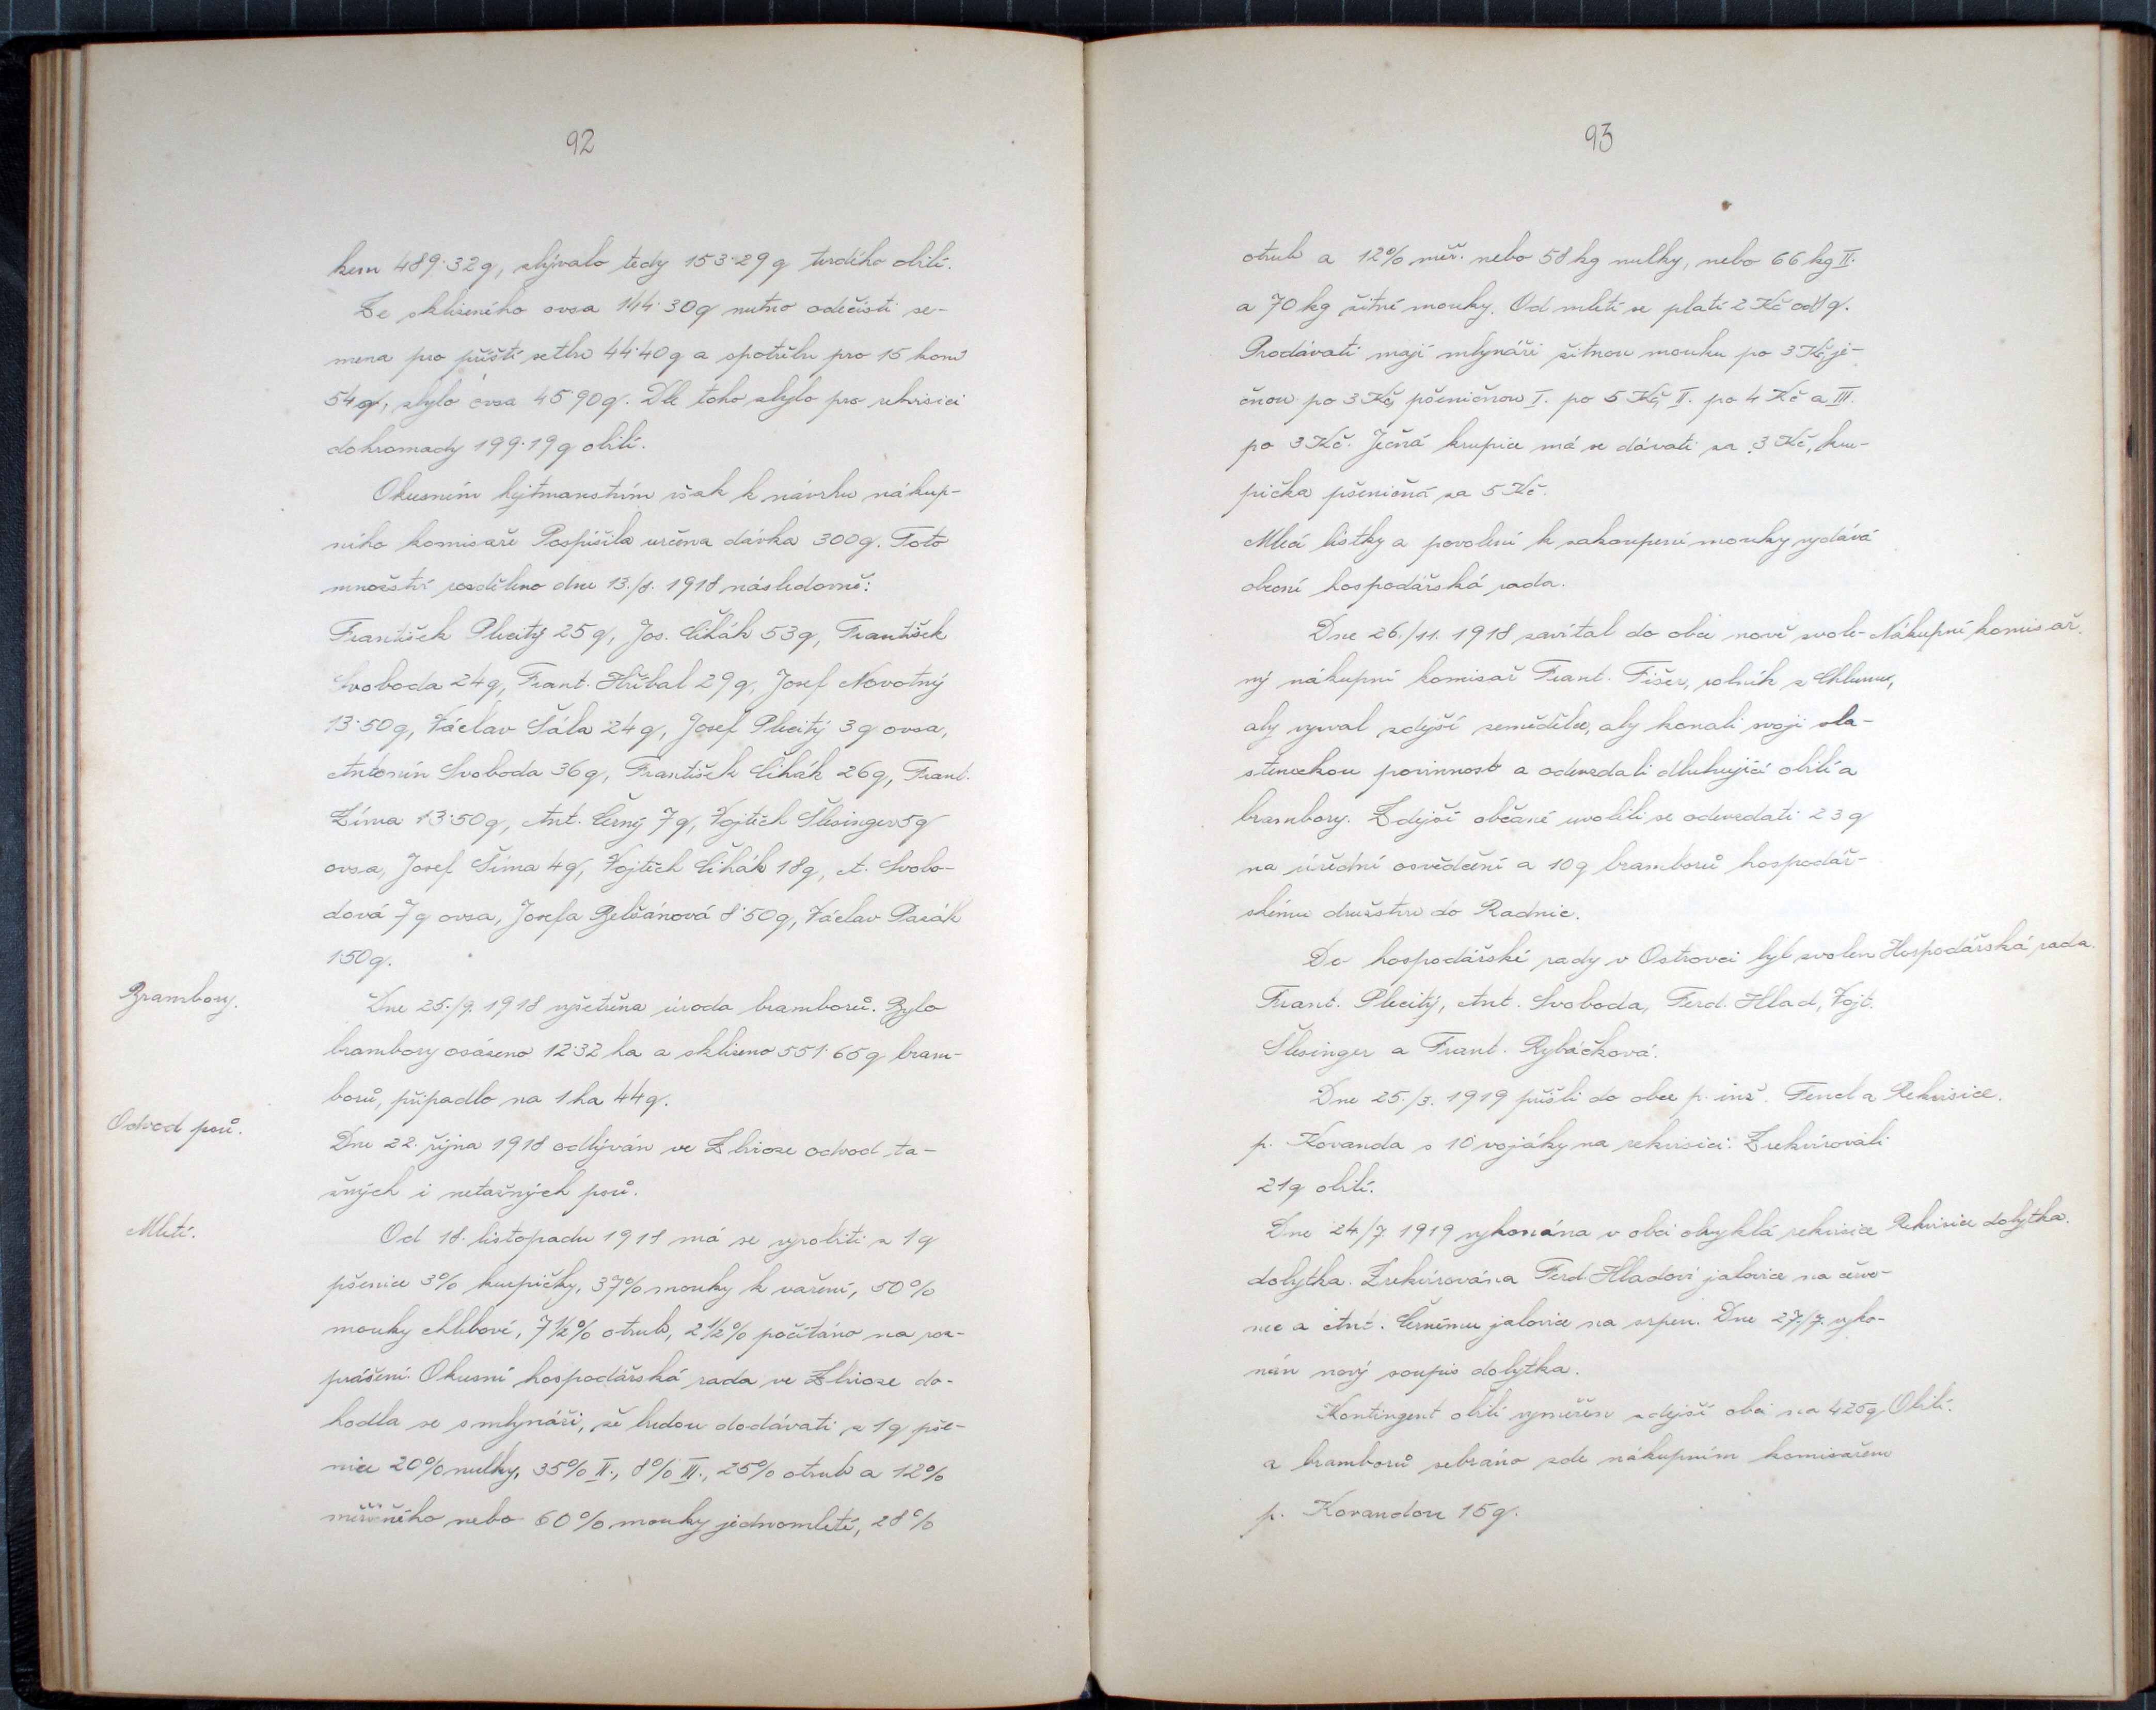 92
kem 489·32q, zbývalo tedy 153·29 q tvrdého obilí.
Ze sklizeného ovsa 144·30q nutno odečísti se-
mena pro příští setbu 44·40q a spotřebu pro 15 koní
54q, zbylo ovsa 45·90q. Dle toho zbylo pro rekvisici
dohromady 199·19q obilí.
Okresním hejtmanstvím však k návrhu nákup-
ního komisaře Pospíšila určena dávka 300q. Toto
množství rozděleno dne 13./8. 1918 následovně:
František Plecitý 25q, Jos. Čihák 53q, František
Svoboda 24q, Frant. Hříbal 29q, Josef Novotný
13·50q, Václav Šála 24q, Josef Plecitý 3q ovsa,
Antonín Svoboda 36q, František Čihák 26q, Frant.
Zíma 13·50q, Ant. Černý 7q, Vojtěch Šlesinger 5q
ovsa, Josef Šíma 4q, Vojtěch Čihák 18q, A. Svobo-
dová 7q ovsa, Josefa Belšánová 8·50q, Václav Pazák
1·50q.
Brambory.
Dne 25./9. 1918 vyšetřena úroda bramborů. Bylo
brambory osázeno 12·32 ha a sklizeno 551·65q bram-
borů, připadlo na 1 ha 44q.
Odvod psů.
Dne 22. října 1918 odbýván ve Zbiroze odvod ta-
žných i netažných psů.
Mletí.
Od 18. listopadu 1918 má se vyrobiti z 1q
pšenice 3% krupičky, 37% mouky k vaření, 50%
mouky chlebové, 7 1/2% otrub, 2 1/2% počítáno na roz-
prášení. Okresní hospodářská rada ve Zbiroze do-
hodla se s mlynáři, že budou dodávati z 1q pše-
nice 20% nulky, 35% II., 8% III., 25% otrub a 12%
měřičného nebo 60% mouky jednomletí, 28%
93
otrub a 12% měř. nebo 58 kg nulky, nebo 66 kg II.
a 70 kg žitné mouky. Od mletí se platí 2 Kč od 1q.
Prodávati mají mlynáři žitnou mouku po 3 Kč, je-
čnou po 3 Kč, pšeničnou I. po 5 Kč, II. po 4 Kč a III.
po 3 Kč. Ječná krupice má se dávati za 3 Kč, kru-
pička pšeničná za 5 Kč.
Mlecí lístky a povolení k zakoupení mouky vydává
obecní hospodářská rada.
Dne 26./11. 1918 zavítal do obce nově zvole-
Nákupní komisař.
ný nákupní komisař Frant. Fišer, rolník z Chlumu,
aby vyzval zdejší zemědělce, aby konali svoji vla-
steneckou povinnost a odevzdali dluhující obilí a
brambory. Zdejší občané uvolili se odevzdati 23q
na úřední osvědčení a 10q bramborů hospodář-
skému družstvu do Radnic.
Do hospodářské rady v Ostrovci byl zvolen
Hospodářská rada.
Frant. Plecitý, Ant. Svoboda, Ferd. Hlad, Vojt.
Šlesinger a Frant. Rybáčková.
Dne 25./3. 1919 přišli do obce p. inž. Fencl a
Rekvisice.
p. Kovanda s 10 vojáky na rekvisici. Zrekvírovali
21q obilí.
Dne 24/7. 1919 vykonána v obci obvyklá rekvisice
Rekvisice dobytka.
dobytka. Zrekvírována Ferd. Hladovi jalovice na červe-
nec a Ant. Černému jalovice na srpen. Dne 27./7. vyko-
nán nový soupis dobytka.
Kontingent obilí vyměřen zdejší obci na 425q
Obilí.
a bramborů sebráno zde nákupním komisařem
p. Kovandou 15q.